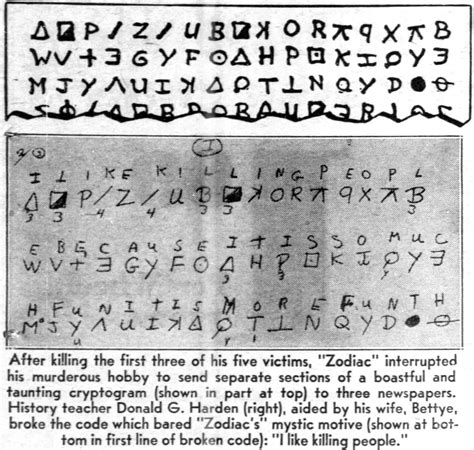 Δ ◪ P / Z / U B ◪ ꓘ O R π 9 X π B
W V + Ǝ G Y F ⊙ Δ H P ⊡ K I ꟼ Y Ǝ
M J Y Λ U I ꓘ Δ ꟼ T ⊥ N Q Y D ● ⊖
I
I L I K E K I L L I N G P E O P L
Δ ◪ P / Z / U B ◪ ꓘ O R π 9 X π B
3 3 4 4 3 3 3
E B E C A U S E I T I S S O M U C
W V + Ǝ G Y F ⊙ Δ H P ⊡ K I ꟼ Y Ǝ
H F U N I T I S M O R E F U N T H
M J Y Λ U I ꓘ Δ ꟼ T ⊥ N Q Y D ● ⊖
After killing the first three of his five victims, "Zodiac" interrupted
his murderous hobby to send separate sections of a boastful and
taunting cryptogram (shown in part at top) to three newspapers.
History teacher Donald G. Harden (right), aided by his wife, Bettye,
broke the code which bared "Zodiac's" mystic motive (shown at bot-
tom in first line of broken code): "I like killing people."